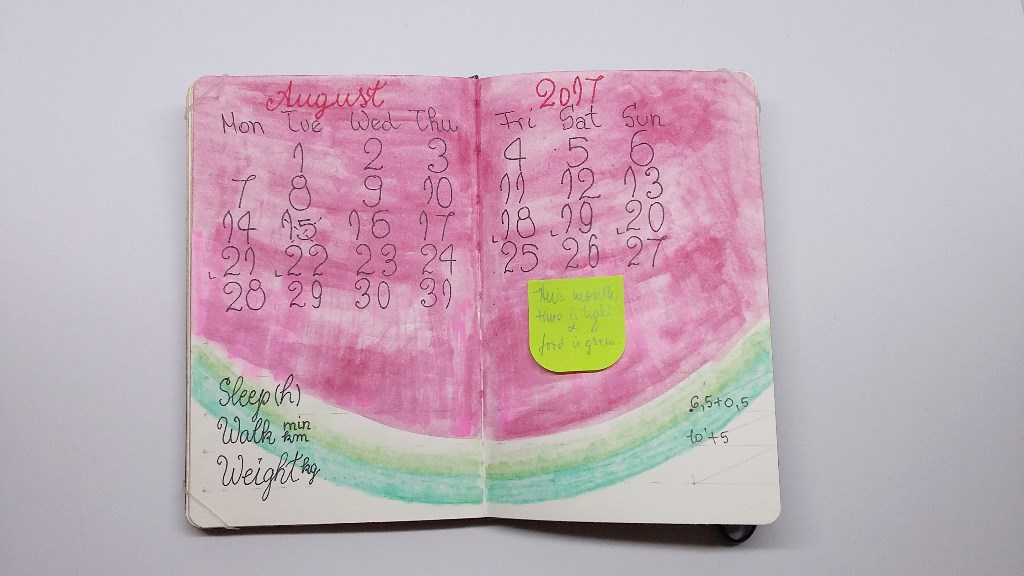 August 2017
Mon Tue Wed Thu Fri Sat Sun
1 2 3 4 5 6
7 8 9 10 11 12 13
14 15 16 17 18 19 20
21 22 23 24 25 26 27
28 29 30 31
This month
there is light
&
food is green.
Sleep(h) 6,5+0,5
Walk min km 10'+5
Weight kg